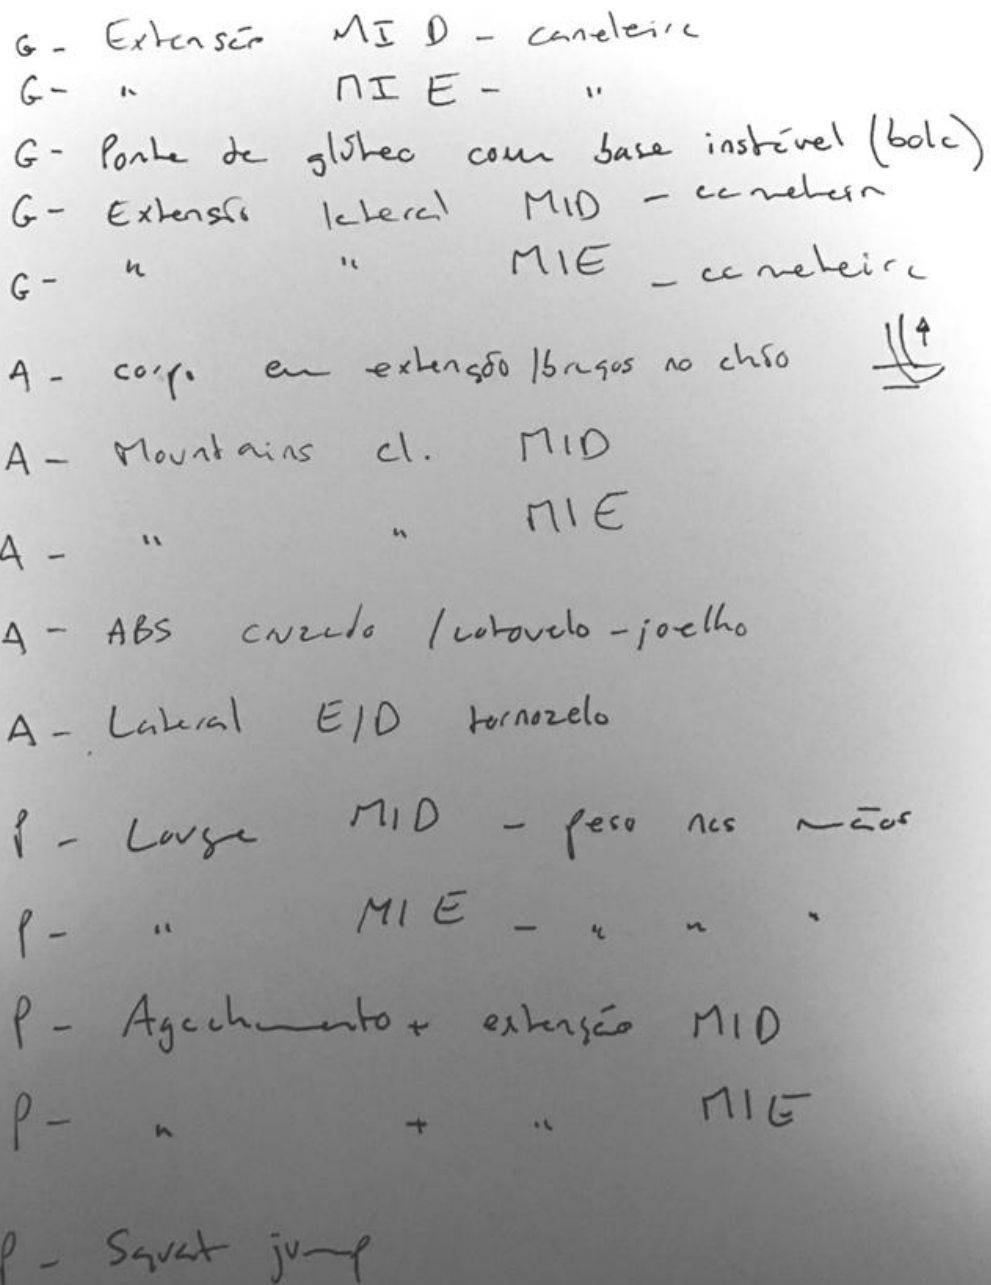 G - Extensão MID - caneleira
G - " MIE - "
G - Ponte de glúteo com base instável (bola)
G - Extensão lateral MID - caneleira
G - " " MIE - caneleira
A - corpo em extenção / braços no chão
A - Mountains cl. MID
A - " " MIE
A - ABS cruzado / cotovelo - joelho
A - Lateral E/D tornozelo
P - Lounge MID - peso nas mãos
P - " MIE - " " "
P - Agachamento + extensão MID
P - " + " MIE
P - Squat jump